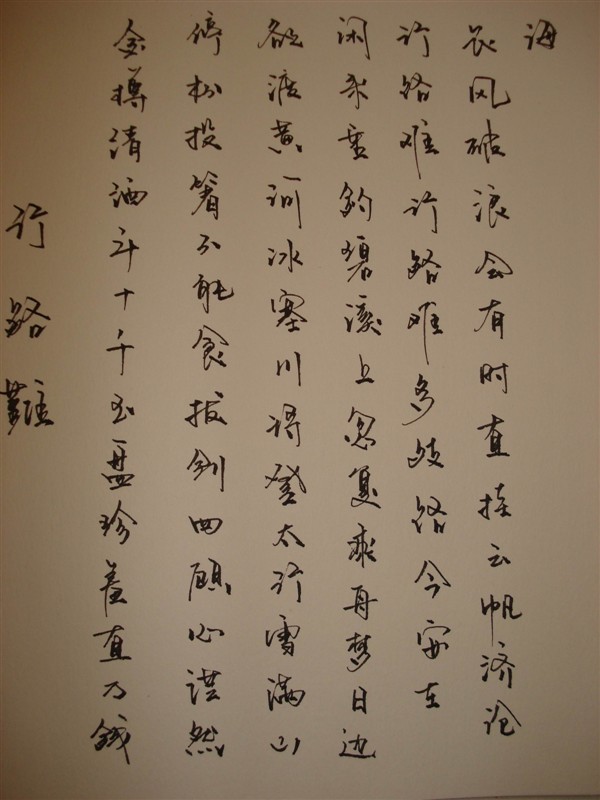 行路難
金樽清酒斗十千玉盘珍羞直万钱
停杯投箸不能食拔剑四顾心茫然
欲渡黄河冰塞川将登太行雪满山
闲来垂钓碧溪上忽复乘舟梦日边
行路难行路难多歧路今安在
长风破浪会有时直挂云帆济沧
海